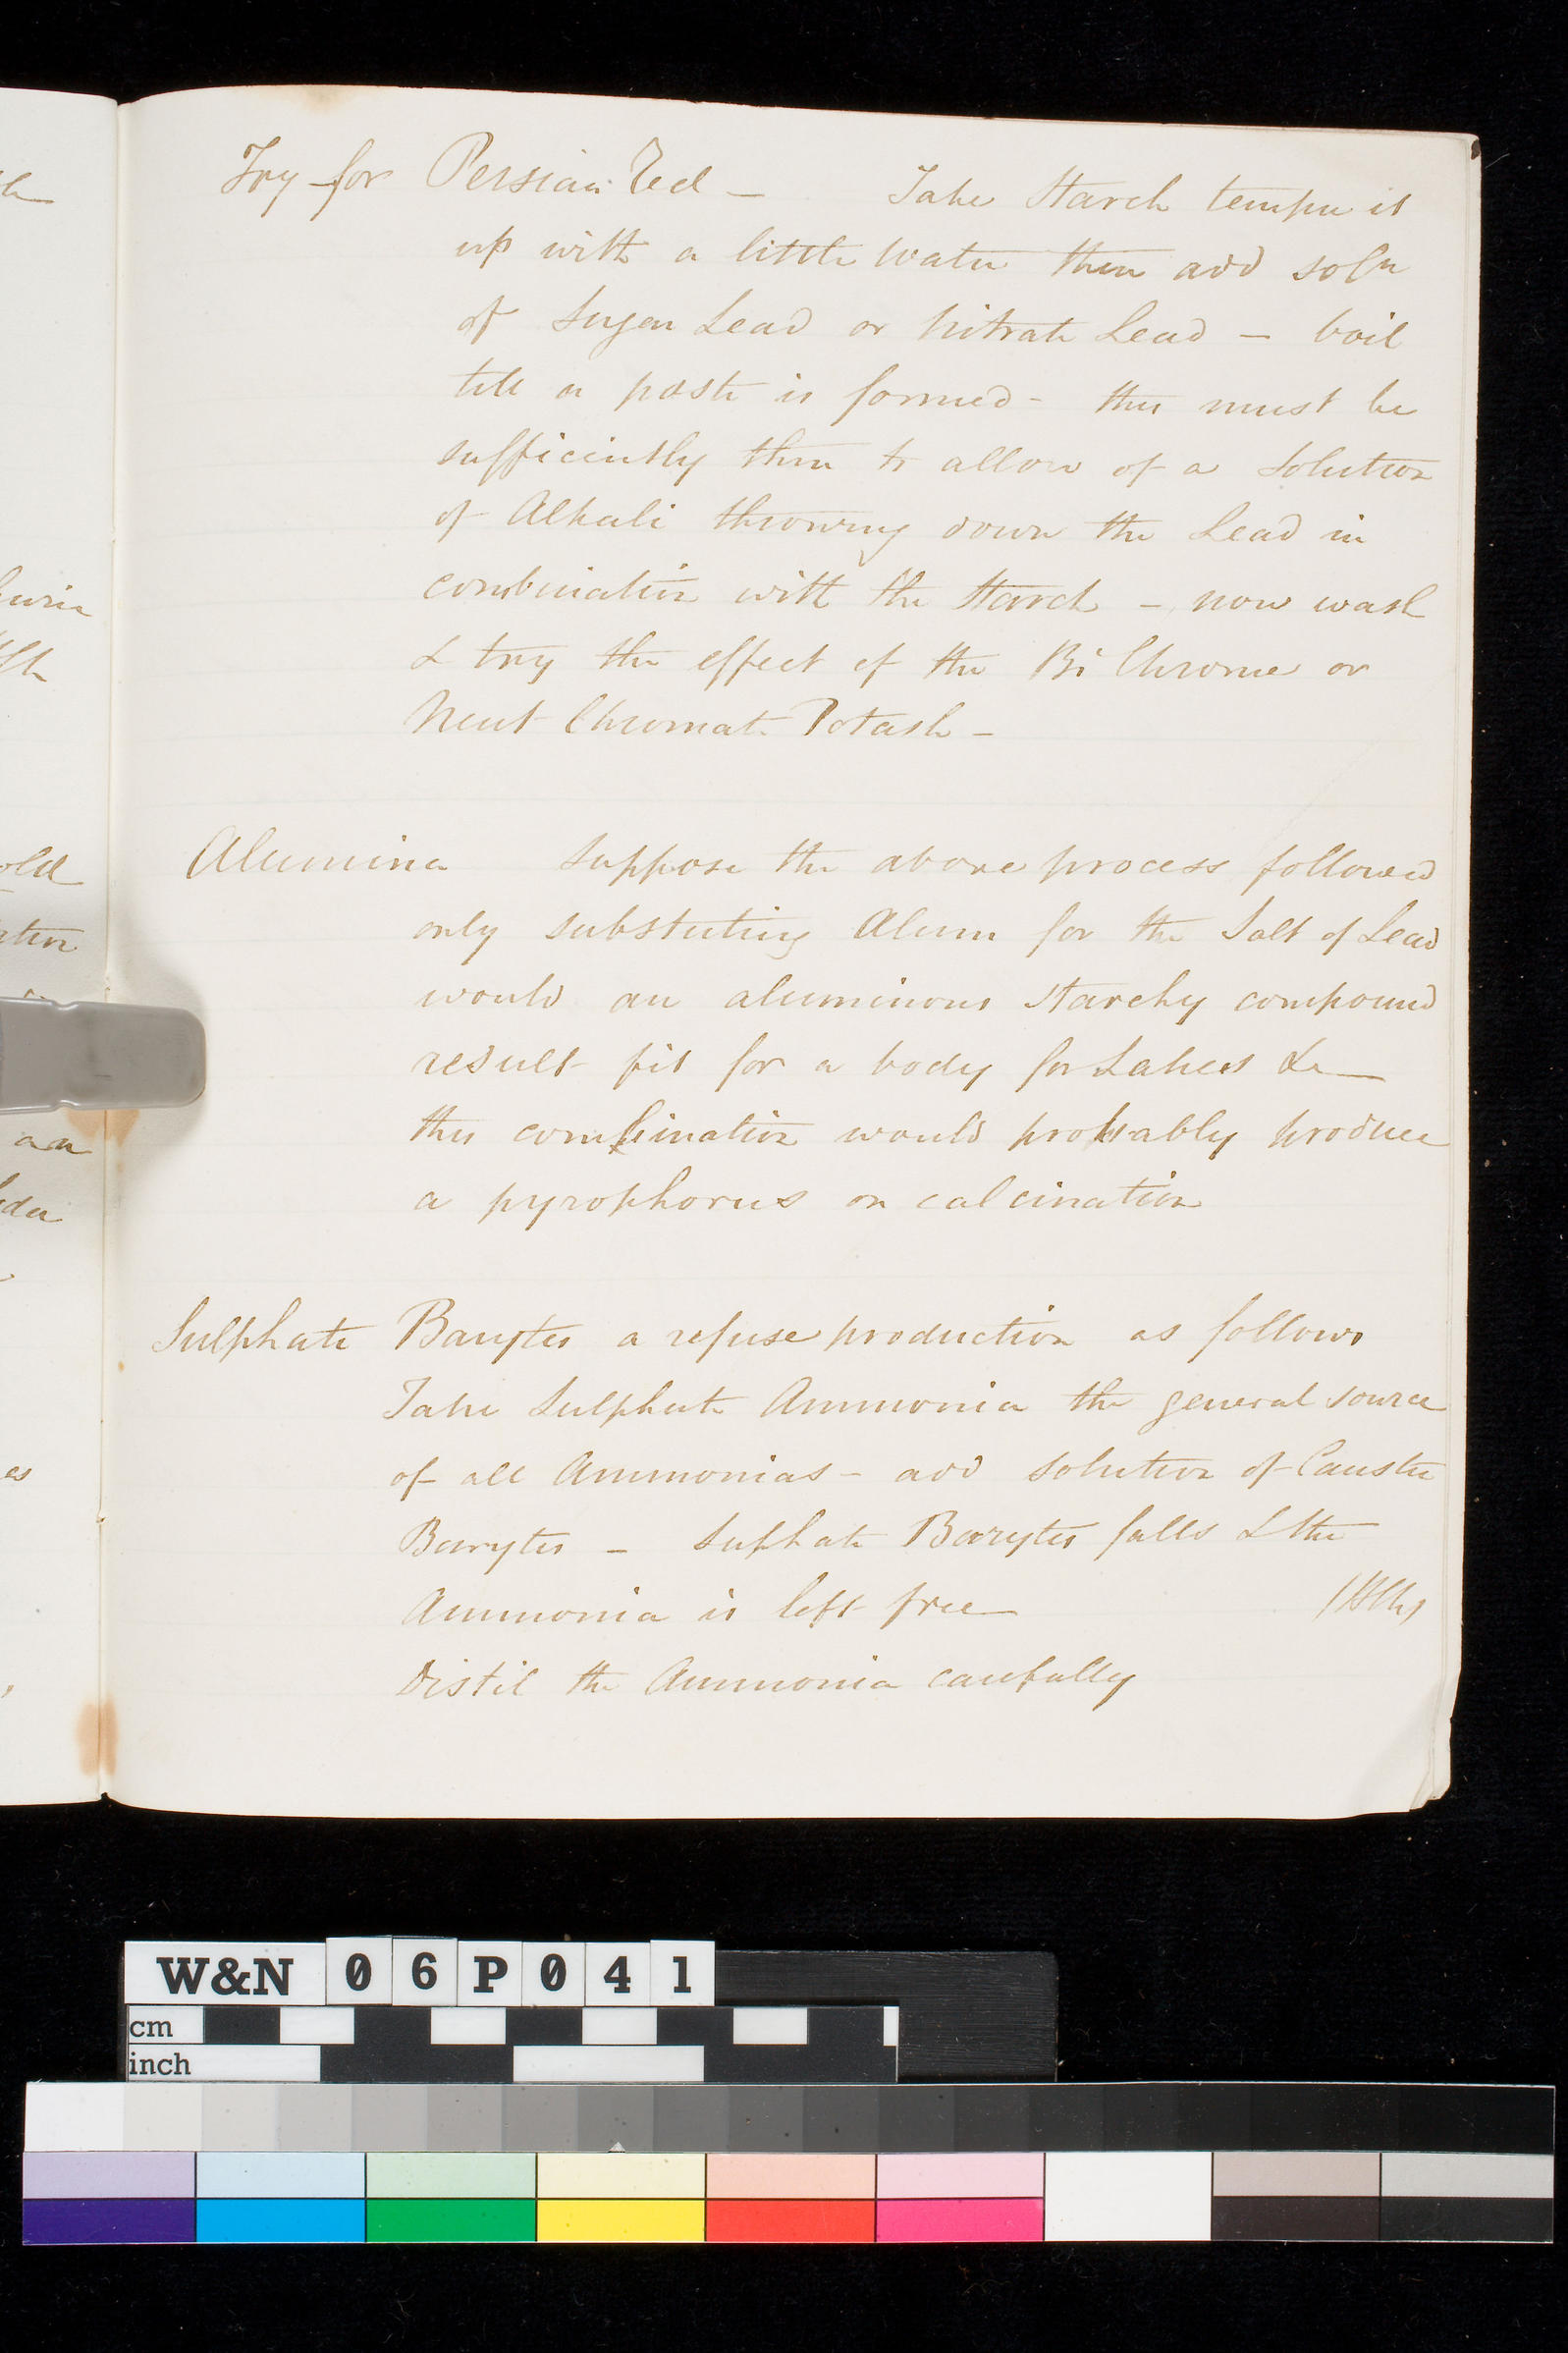 Try for Persian Red — Take Starch temper it
up with a little water then add soln
of Sugar Lead or Nitrate Lead — boil
till a paste is formed - this must be
sufficiently thin to allow of a solution
of Alkali throwing down the Lead in
combination with the Starch — now wash
& try the effect of the Bi Chrome or
Neut Chromate Potash —
Alumina Suppose the above process followed
only substuting Alum for the Salt of Lead
would an aluminous starchy compound
result fit for a body for Lakes &c —
this combination would probably produce
a pyrophorus on calcination
Sulphate Barytes a refuse production as follows
Take Sulphate Ammonia the general source
of all Ammonias - add solution of Caustic
Barytes — Suphate Barytes falls & the
Ammonia is left free
Distil the Ammonia carefully
old
an
es
W&N 06P041
cm
inch